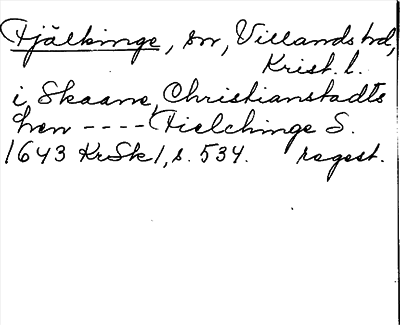 Fjälkinge, sn, Villands hd,
Krist. l.
i Skaane, Christianstadts
Len ---- Fielchinge S.
1643 KrSk1, s. 534. regest.